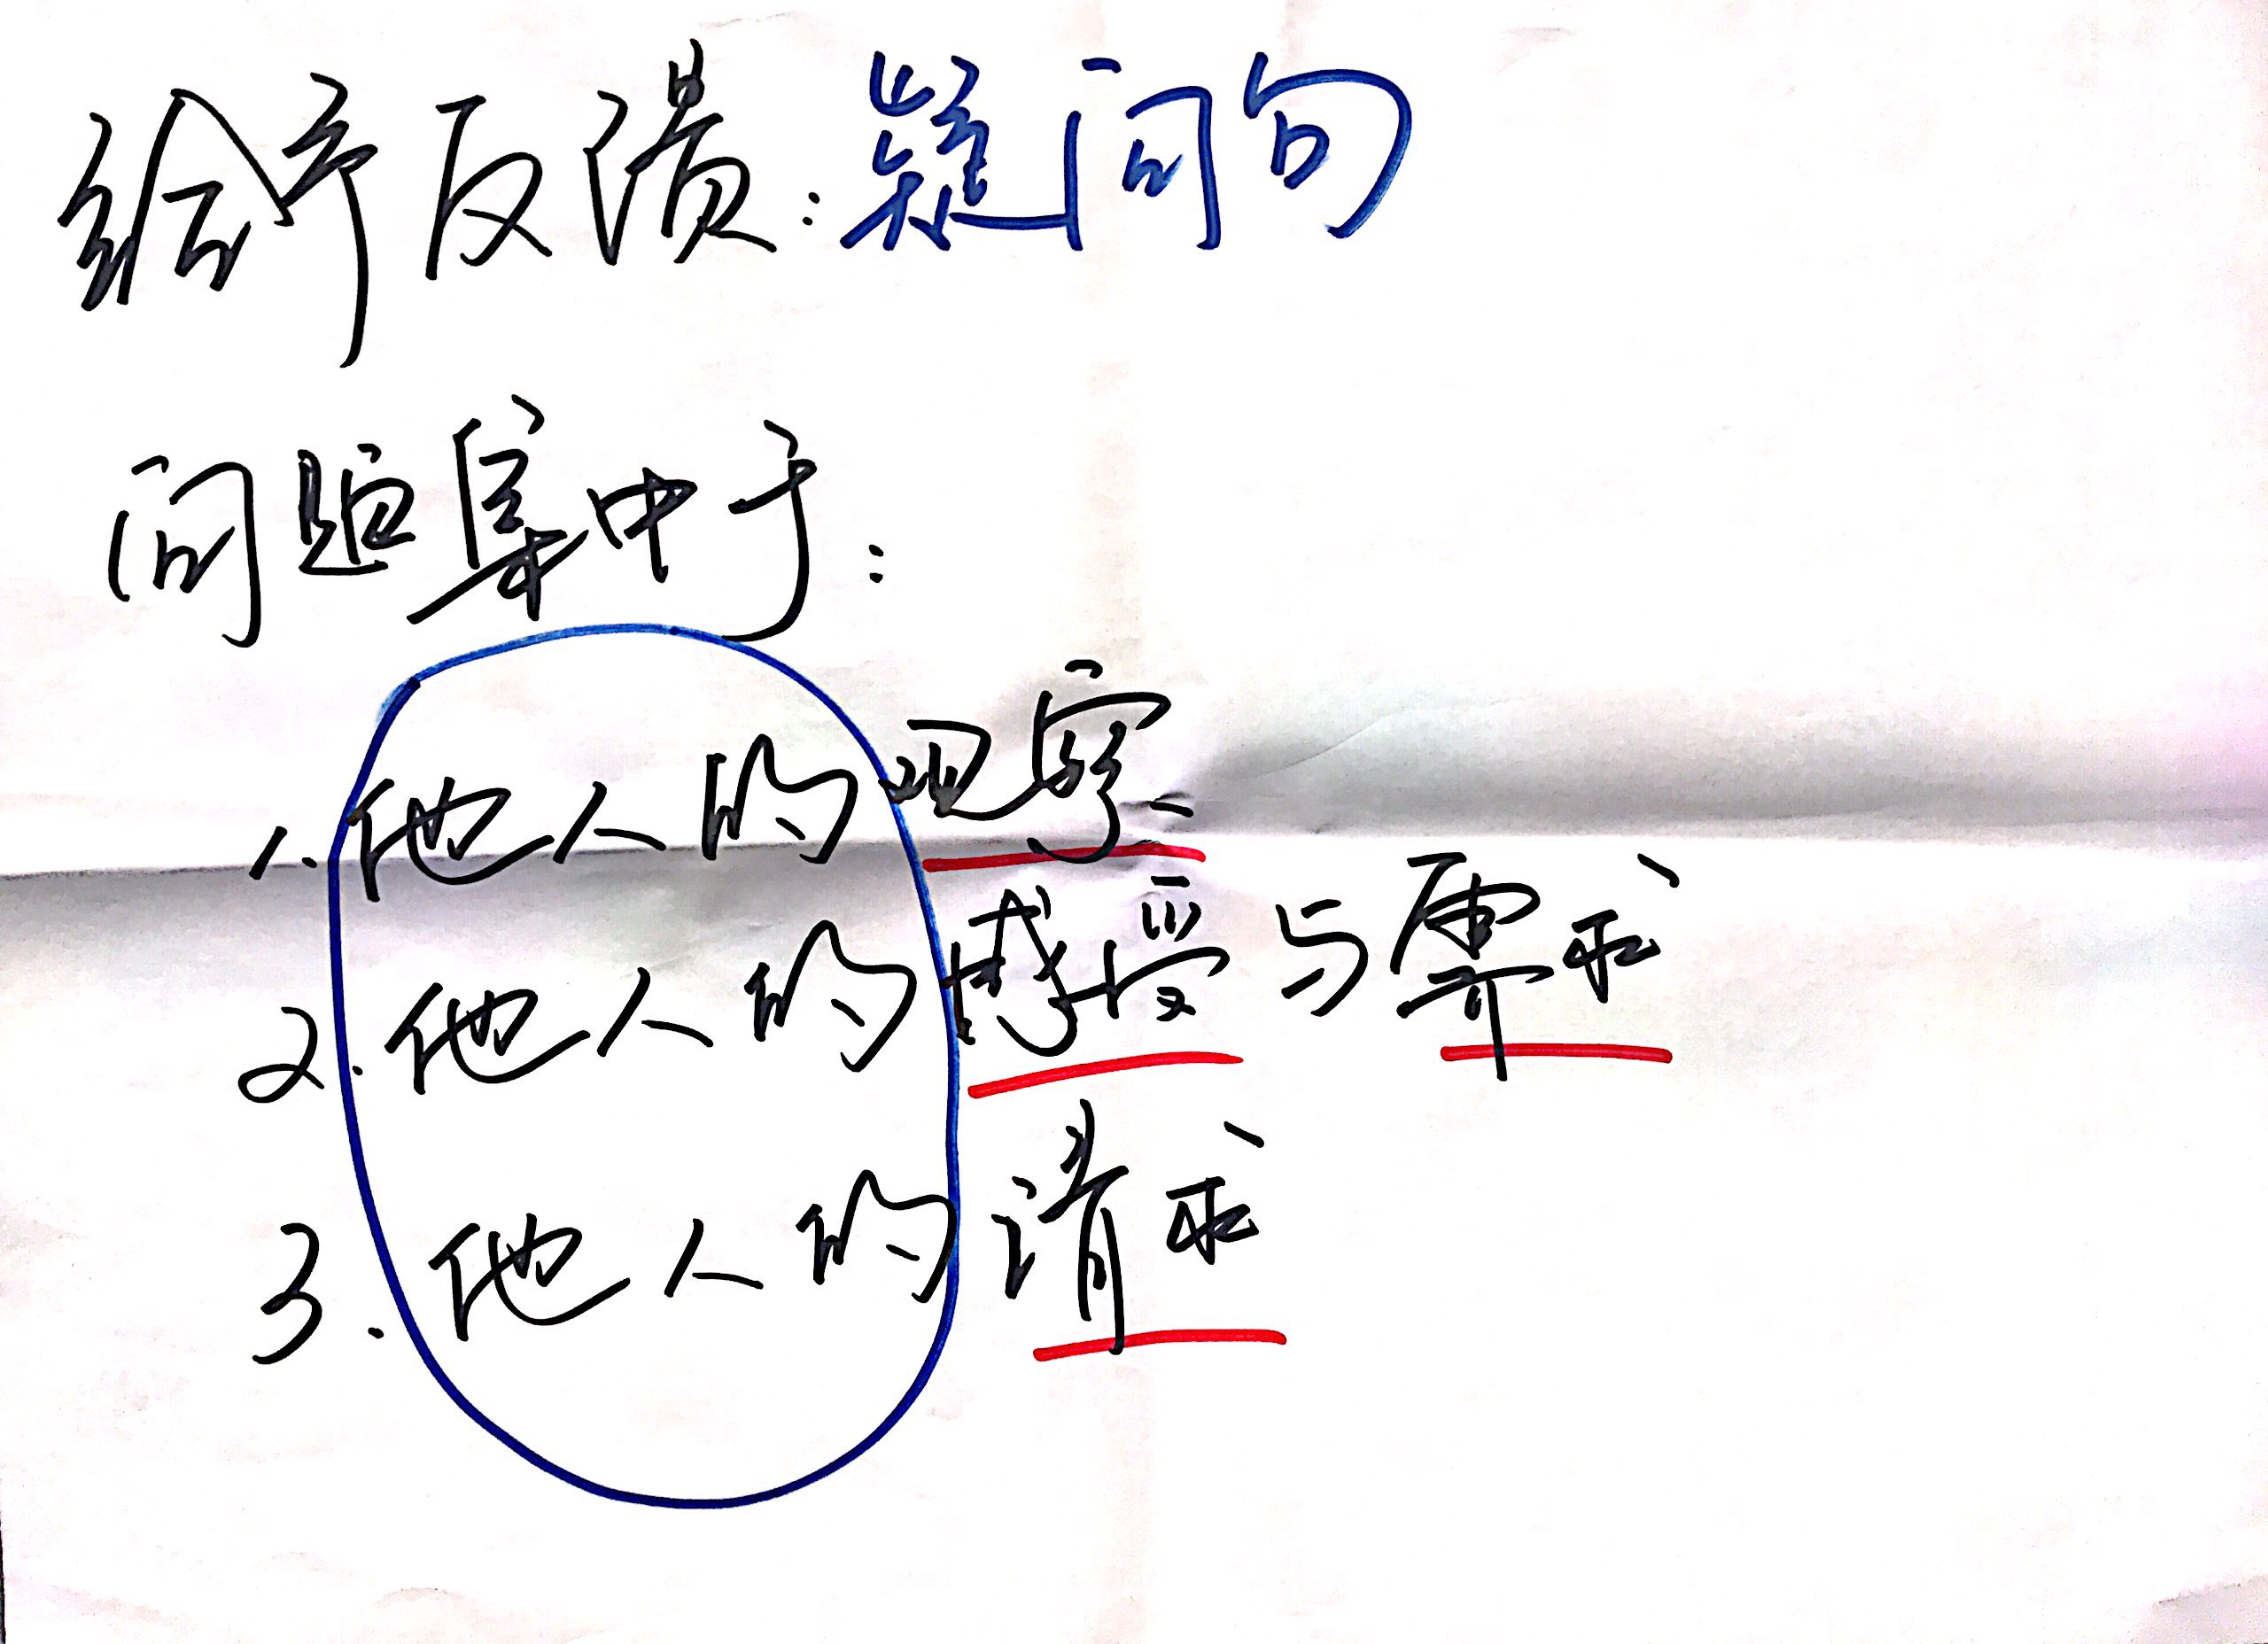 给予反馈：疑问句
问题集中于：
1. 他人的观察
2. 他人的感受与需求
3. 他人的请求